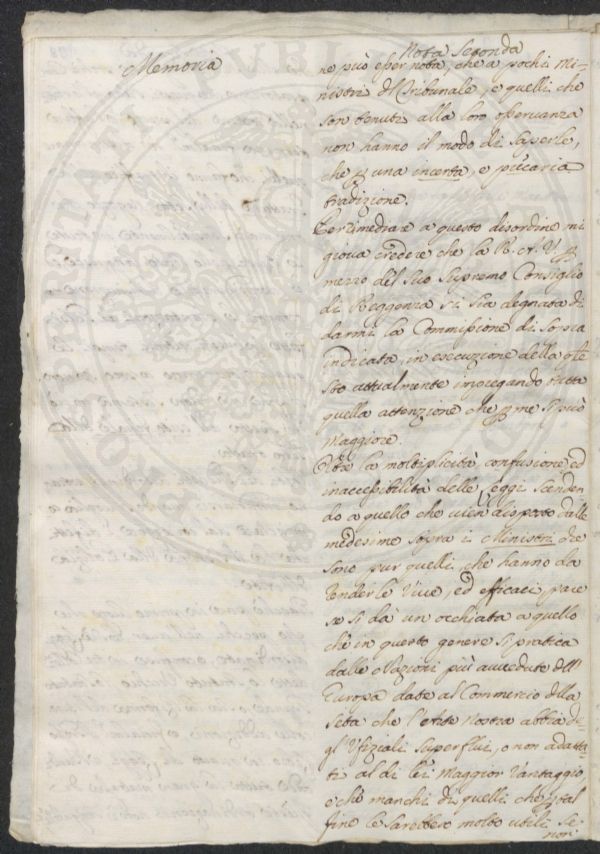 Memoria
Nota Seconda
ne può esser nota, che a pochi Mi-
nistri d'Tribunale, e quelli che
son tenuti alla loro osservanza
non hanno il modo di saperle,
che p una incerta, e p'caria
tradizione.
Per rimediare a questo disordine mi
giova credere che la R. A. V. p
mezzo del suo Supremo Consiglio
di Reggenza si sia degnata di
darmi la Commissione di sopra
indicata, in esecuzione della q'le
sto attualmente impiegando tutta
quella attenzione che p me si può
Maggiore.
Oltre la moltiplicità confusione ed
inaccessibilità delle Leggi scenden
do a quello che vien disposto dalle
medesime sopra i Ministri che
sono pur quelli, che hanno da
renderle vive, ed efficaci, pare
se si dà un occhiata a quello
che in questo genere si pratica
dalle Nazioni più avvedute dell'
Europa date al Commercio della
Seta che l'Arte nostra abbia de-
gl'Ufiziali superflui, o non adatta-
ti al di lei Maggior Vantaggio,
e che manchi di quelli che p tal
fine le sarebbero molto utili se
non